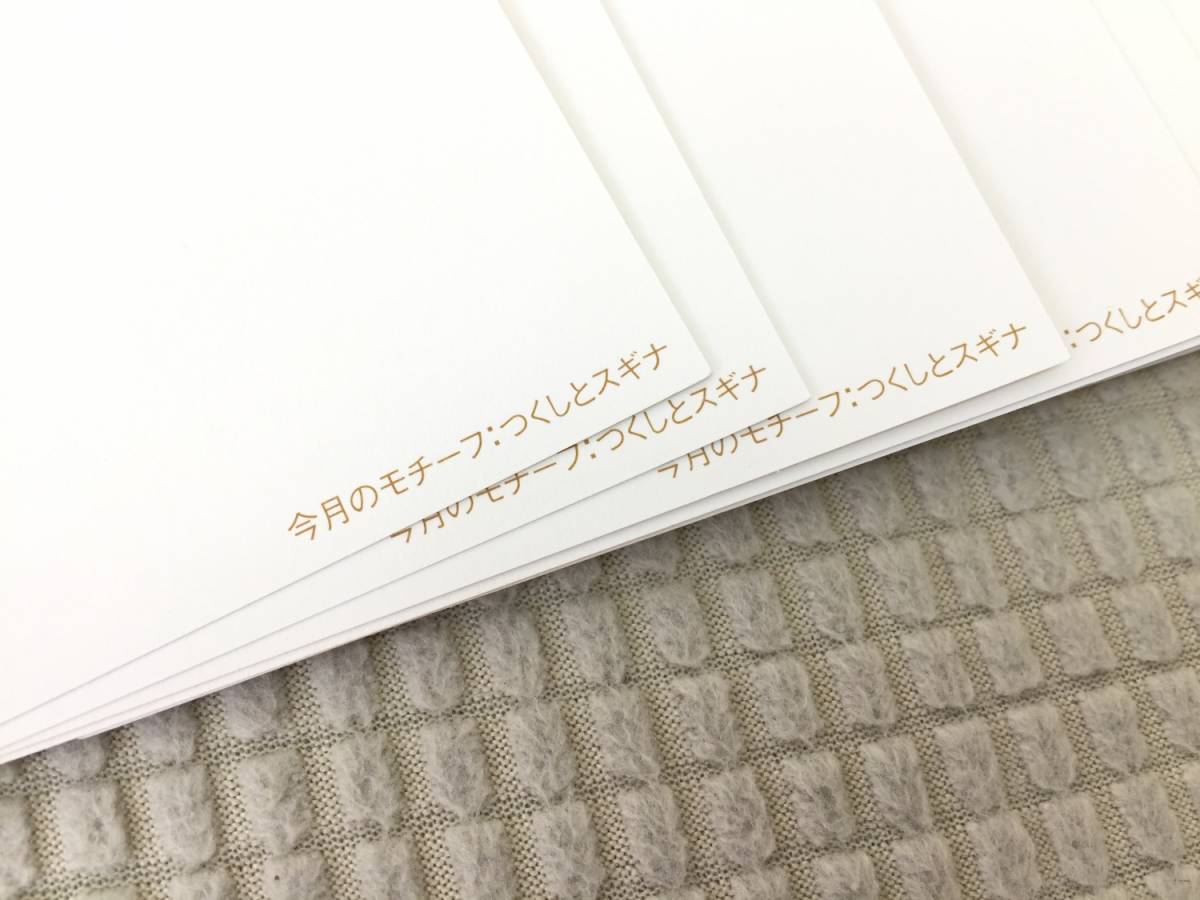 今月のモチーフ:つくしとスギナ
今月のモチーフ:つくしとスギナ
今月のモチーフ:つくしとスギナ
:つくしとスギ